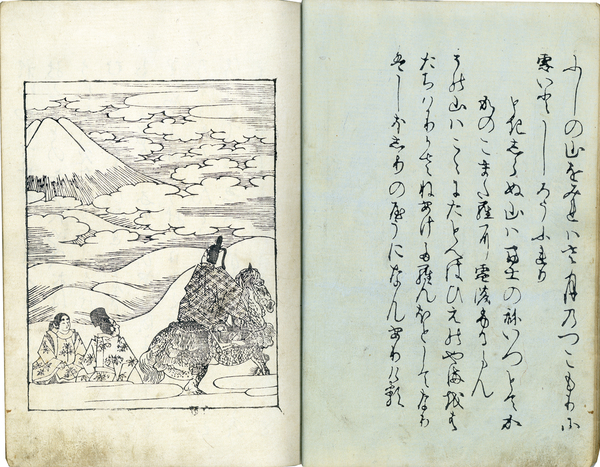 ふしの山をみれはさ月のつこもりに
雪いとしろうふれり
ときしらぬ山は富士のねいつとてか
かのこまたらに雪のふるらん
その山はこゝにたとへはひえのやまをは
たちはかりかさねあけたらんほとしてなり
はしほしりのやうになんありける